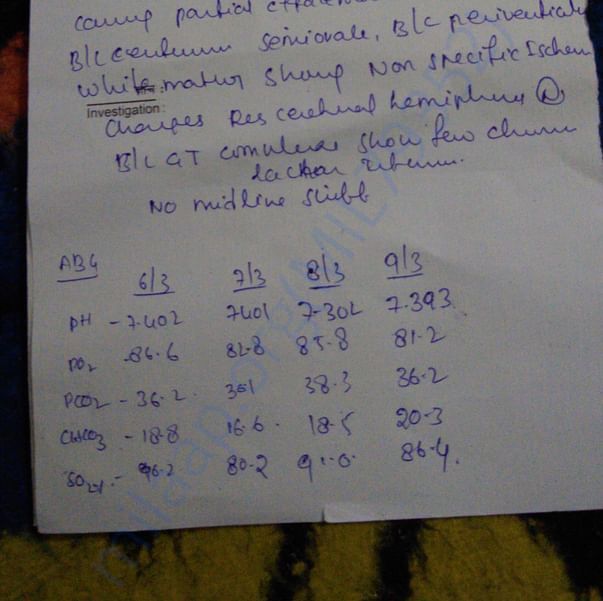 causing partial effacement
B/L centrum semiovale, B/L periventricular
white matter shows Non specific Ischem
Investigation :
changes Res cerebral hemisphere
B/L GT complexes show few chronic
lacunar
No midline shift
ABG 6/3 7/3 8/3 9/3
PH - 7.402 7.401 7.302 7.393
PO2 - 86.6 82.8 85.8 81.2
PCO2 - 36.2 35.1 38.3 36.2
CHCO3 - 18.8 16.6 18.5 20.3
SO2% - 96.2 80.2 91.0 86.4